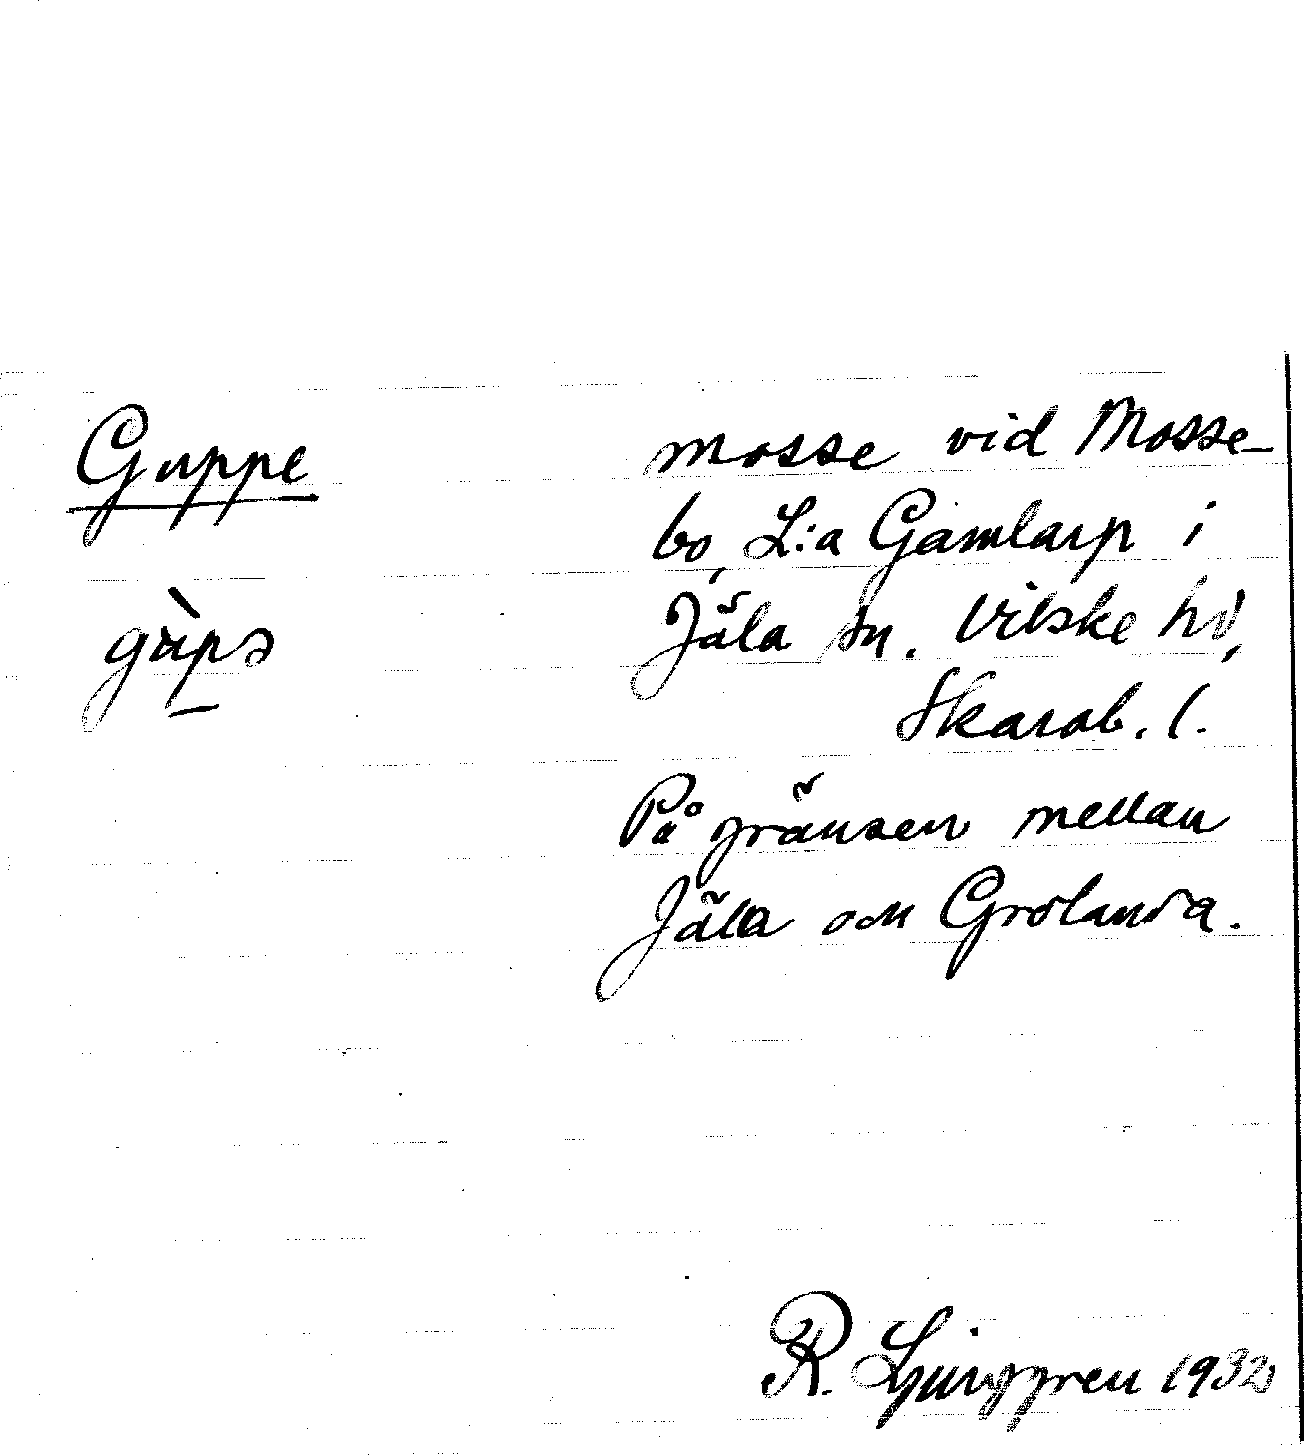 Guppe
gùpə
mosse vid Mosse-
bo, L:a Gamlarp i
Jäla sn. Vilske hd,
Skarab. l.
På gränsen mellan
Jäla och Grolanda.
R. Ljunggren 1932